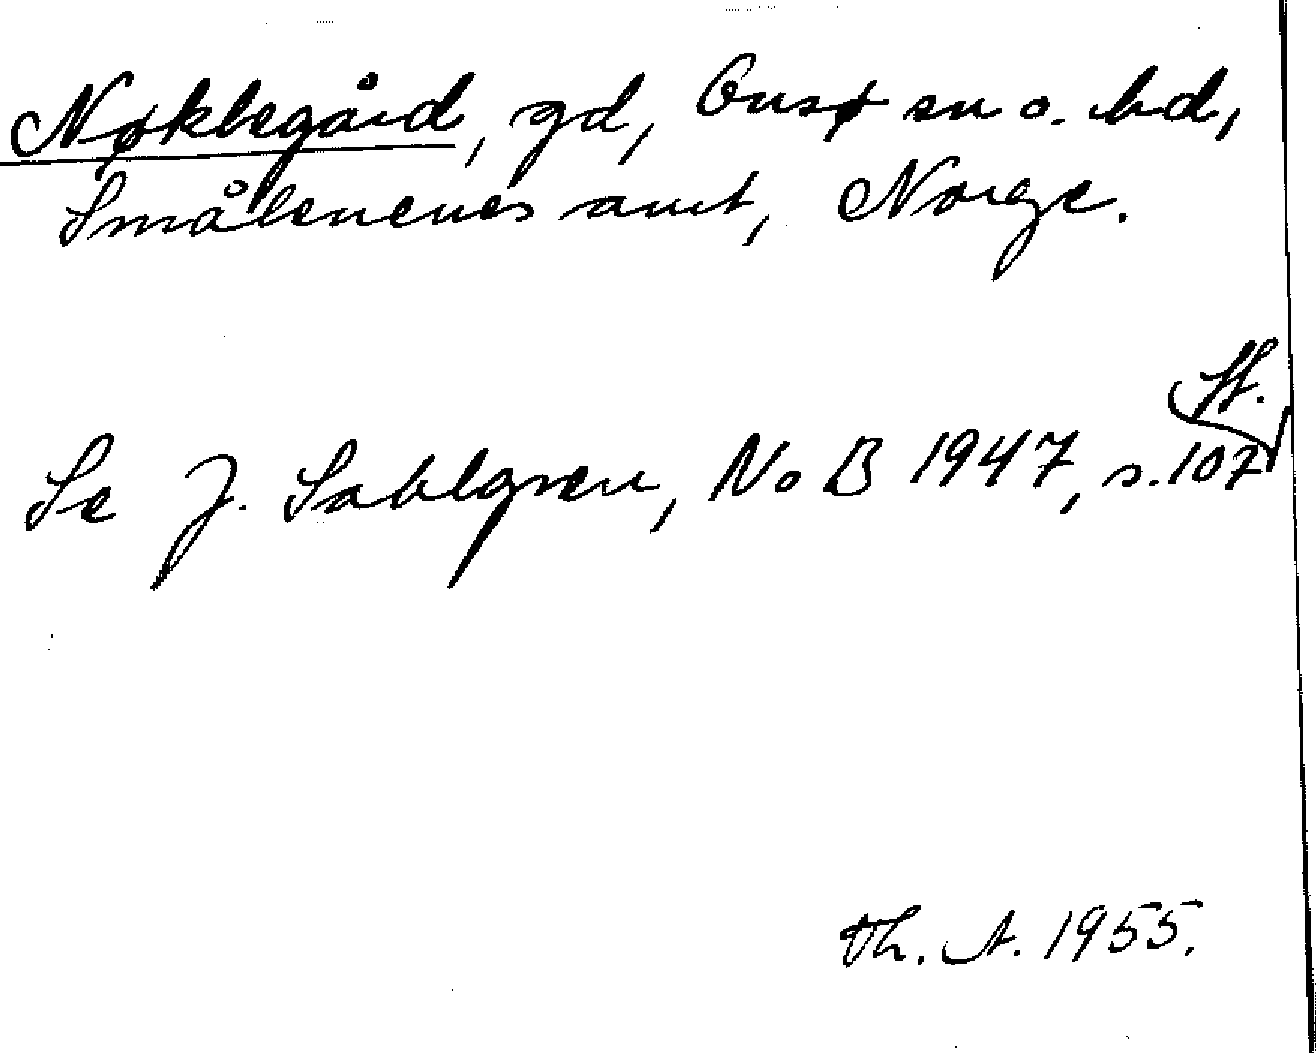 Nøklegård, gd, Onsø sn o. hd,
Smålenenes amt, Norge.
Se J. Sahlgren, NoB 1947, s. 107 ff.
Th. A. 1955.